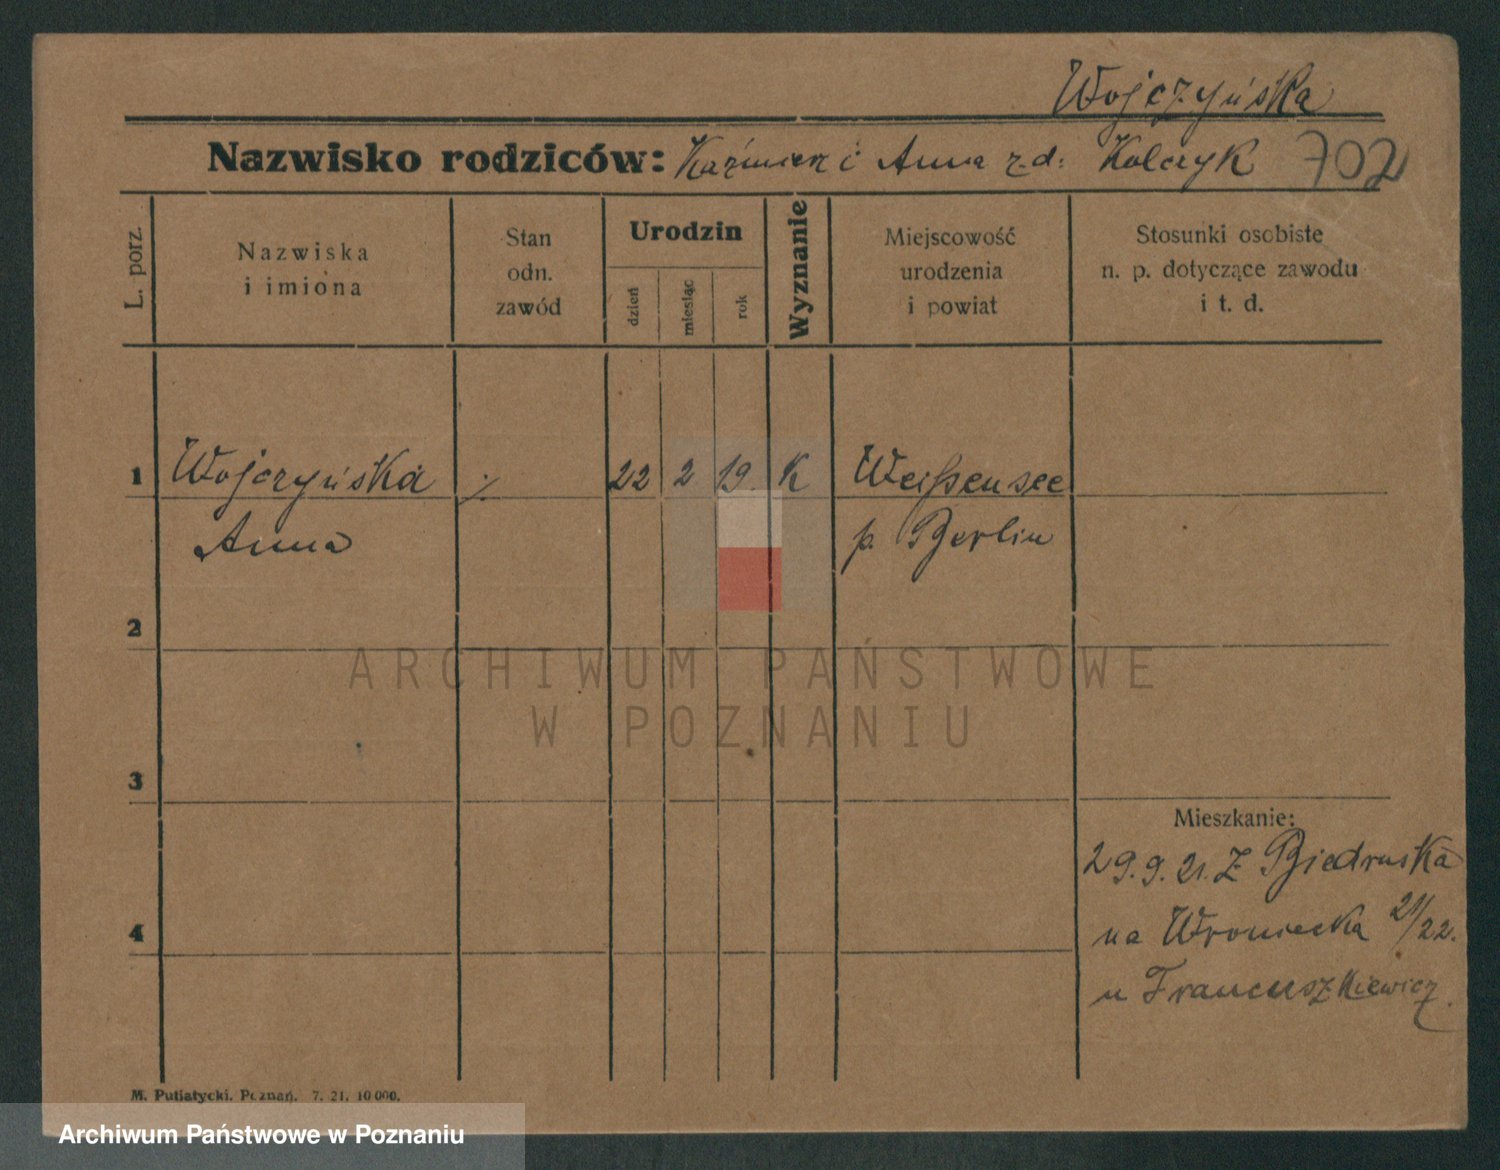 Wojczyńska
Nazwisko rodziców: Kaźmierz i Anna z d: Kolczyk 702
L. porz.
Nazwiska
i imiona
Stan
odn.
zawód
Urodzin
dzień
miesiąc
rok
Wyznanie
Miejscowość
urodzenia
i powiat
Stosunki osobiste
n. p. dotyczące zawodu
i t. d.
1 Wojczyńska ./. 22 2 19. K Weißensee
Anna p. Berlin
2
ARCHIWUM PAŃSTWOWE
W POZNANIU
3
Mieszkanie:
29.9.21. Z Biedruska
4 na Wroniecka 21/22.
u Franciszkiewicz.
M. Putiatycki. Poznań. 7. 21. 10 000.
Archiwum Państwowe w Poznaniu